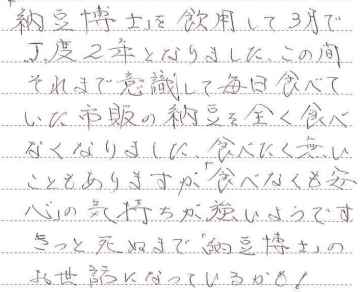 「納豆博士」を飲用して3月で
丁度2年となりました。この間
それまで意識して毎日食べて
いた市販の納豆を全く食べ
なくなりました。食べたく無い
こともありますが、「食べなくも安
心」の気持ちが強いようです
きっと死ぬまで「納豆博士」の
お世話になっているかも!